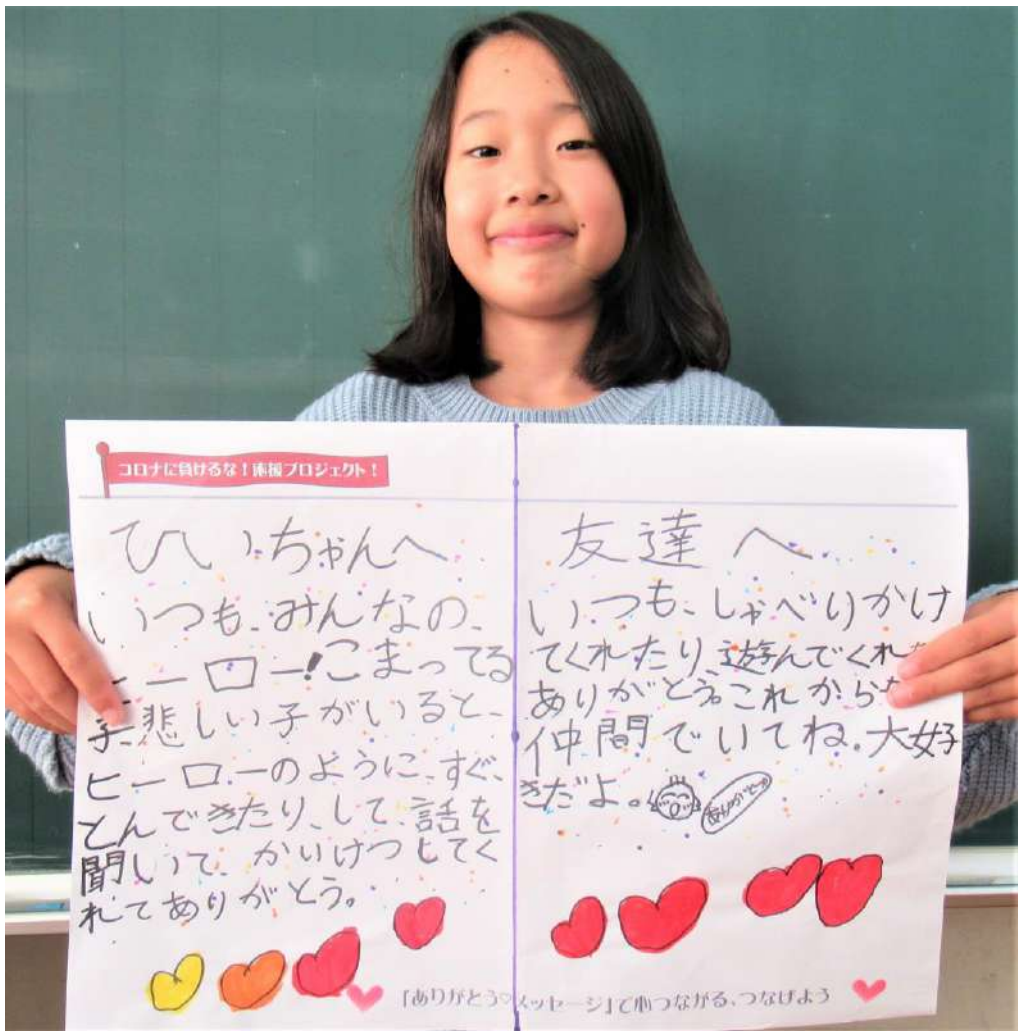 コロナに負けるな！応援プロジェクト！
ひいちゃんへ
いつも、みんなの、
ーロー！こまってる
子、悲しい子がいると、
ヒーローのように、すぐ、
とんできたり、して、話を
聞いて、かいけつしてく
れてありがとう。
友達へ
いつも、しゃべりかけ
てくれたり、遊んでくれ
ありがとう。これから
仲間でいてね。大好
きだよ。
「ありがとう♡メッセージ」で心つながる、つなげよう